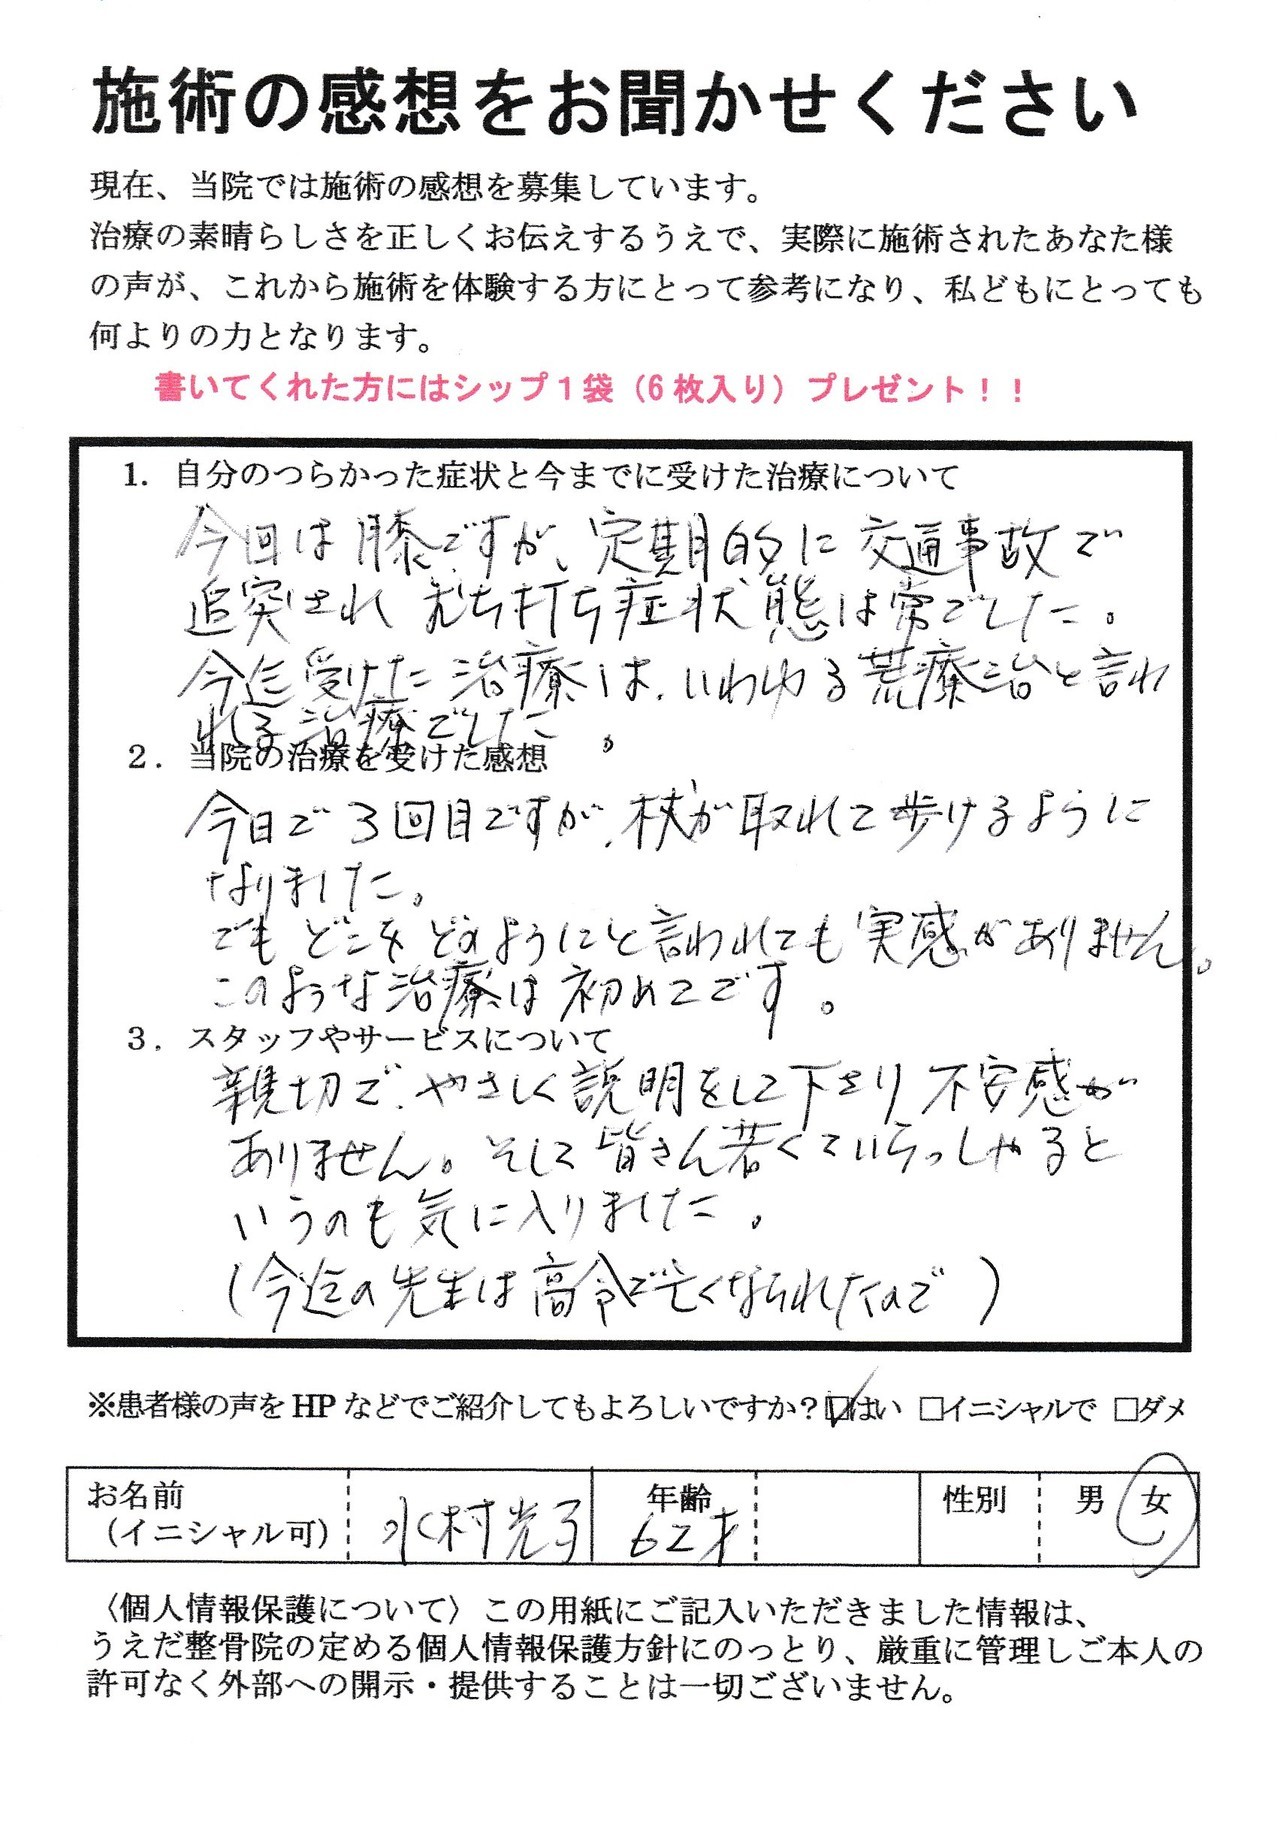 施術の感想をお聞かせください
現在、当院では施術の感想を募集しています。
治療の素晴らしさを正しくお伝えするうえで、実際に施術されたあなた様
の声が、これから施術を体験する方にとって参考になり、私どもにとっても
何よりの力となります。
書いてくれた方にはシップ１袋（6 枚入り）プレゼント！！
1. 自分のつらかった症状と今までに受けた治療について
今回は膝ですが、定期的に交通事故で
追突され むち打ち症状態は常でした。
今迄受けた治療は、いわゆる荒療治と言わ
れる治療でした。
2. 当院の治療を受けた感想
今日で3回目ですが、杖が取れて歩けるように
なりました。
でもどこをどのようにと言われても実感がありません。
このような治療は初めてです。
3. スタッフやサービスについて
親切で、やさしく説明をして下さり不安感が
ありません。そして皆さん若くていらっしゃると
いうのも気に入りました。
(今迄の先生は高令で亡くなられたので)
※患者様の声を HP などでご紹介してもよろしいですか？☑はい □イニシャルで □ダメ
お名前 水村光子 年齢 性別 男 女
（イニシャル可） 62才
〈個人情報保護について〉この用紙にご記入いただきました情報は、
うえだ整骨院の定める個人情報保護方針にのっとり、厳重に管理しご本人の
許可なく外部への開示・提供することは一切ございません。